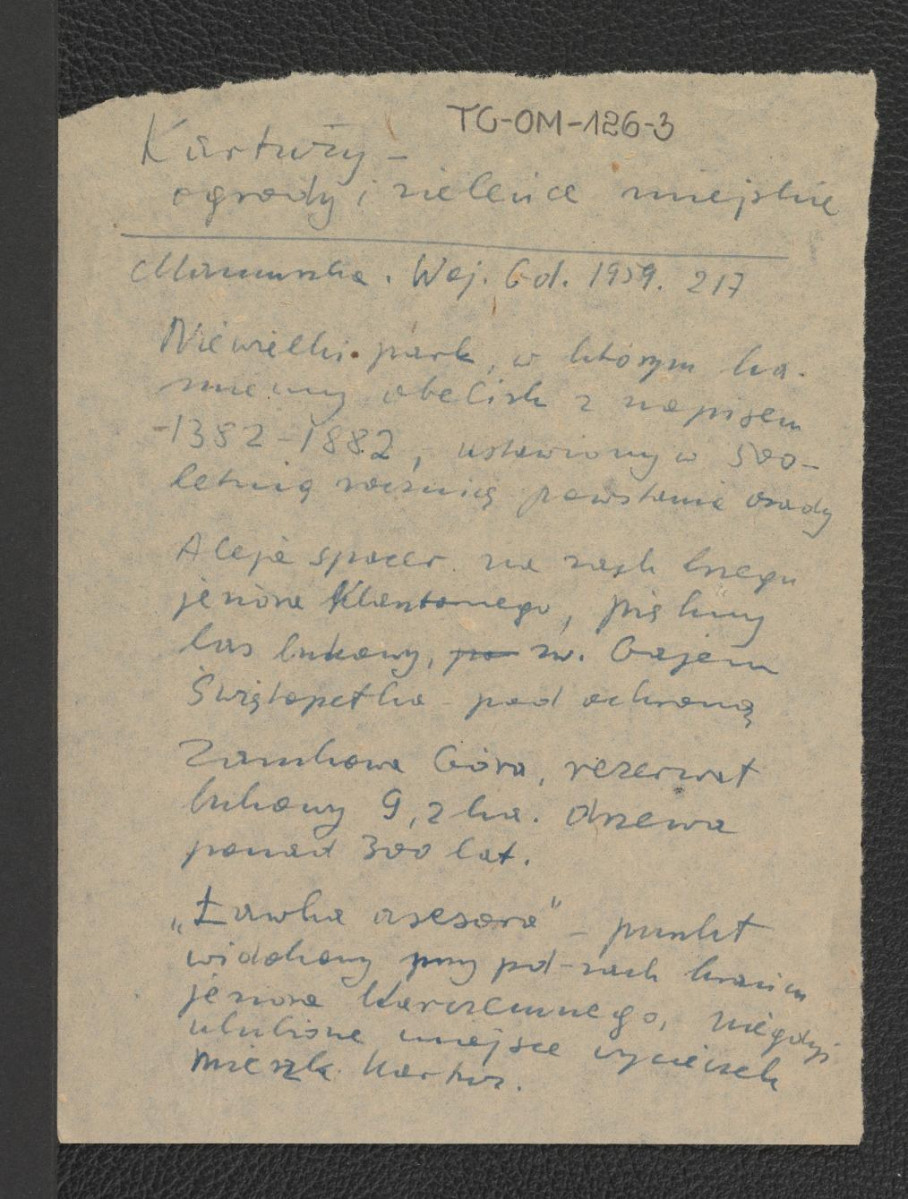 TG-OM-126-3
Kartuzy -
ogrody i zieleńce miejskie
Mamuszka. Woj. Gd. 1959. 217
Niewielki park, w którym ka-
mienny obelisk z napisem
-1382-1882, ustawiony w 500-
letnią rocznicę powstania osady
Aleja spacer. na zach brzegu
jeziora Klasztornego, piękny
las bukowy, po zw. Gajem
Świętopełka - pod ochroną
Zamkowa Góra, rezerwat
bukowy 9,2 ha. drzewa
ponad 300 lat.
„Ławka asesora" - punkt
widokowy przy pd-zach krańcu
jeziora Karczemnego, niegdyś
ulubione miejsce wycieczek
mieszk. Kartuz.